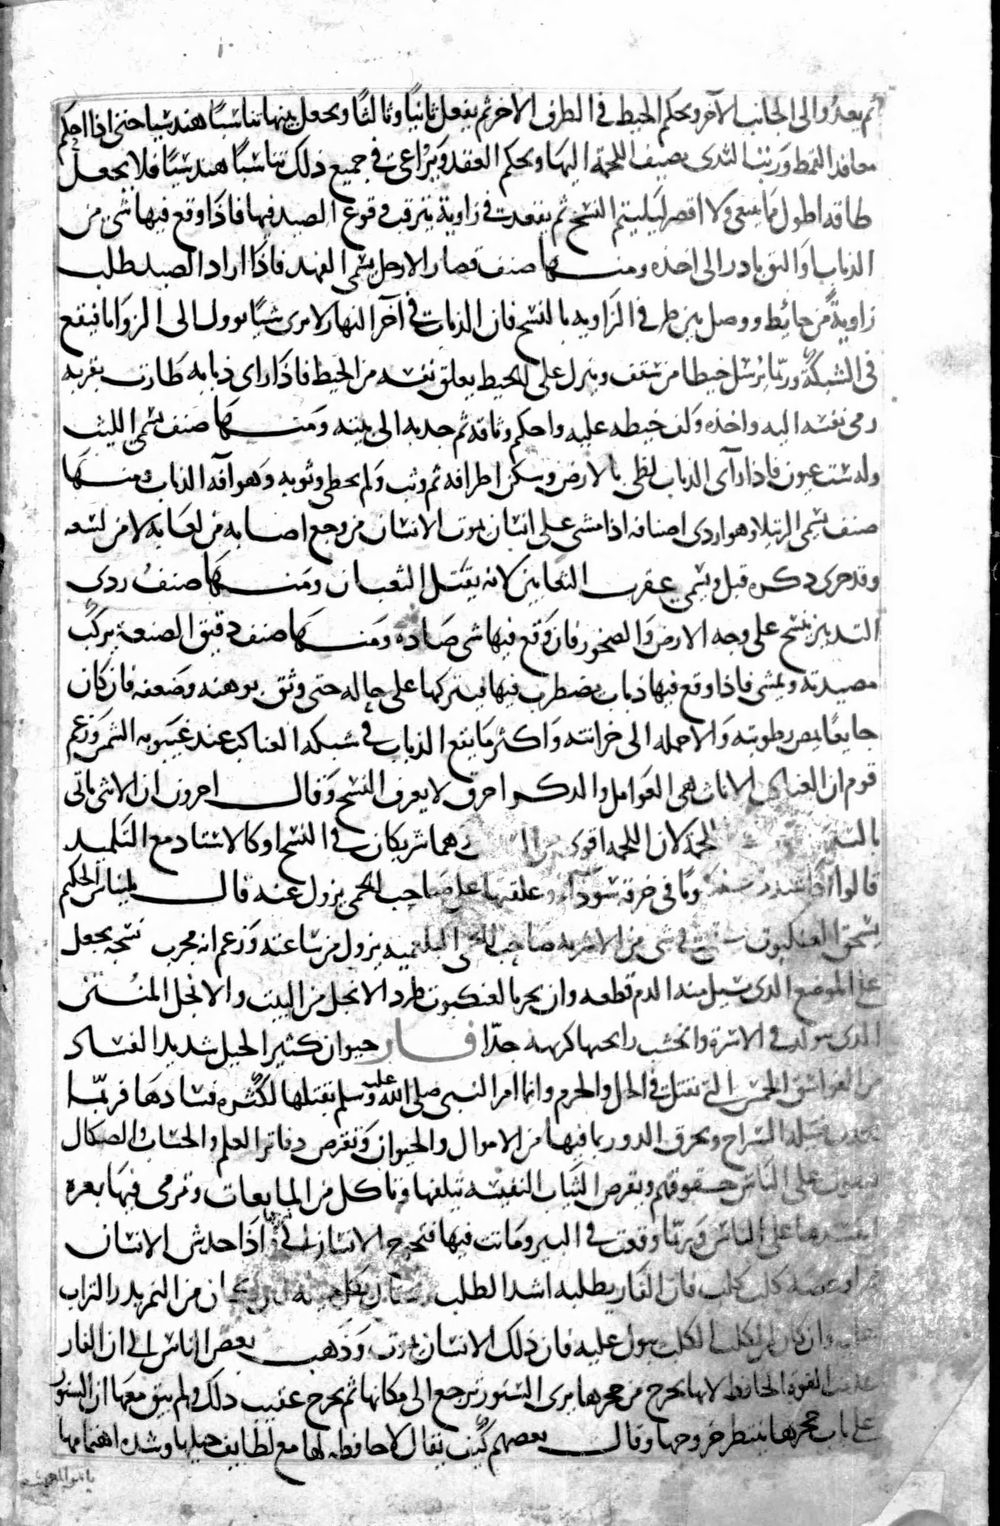 ثم يعدو الى الجانب الآخر ويحكم الخيط فى الطرف الاخر ثم يفعل ثانيًا وثالثًا ويجعل بينها تناسبًا هندسيا حتى اذا احكم
معاقد القمط ورتب السدى يضيف اللحمة اليها ويحكم العقد ويراعى فى جميع ذلك تناسبًا هندسيًا فلا يجعل
طاقه اطول مما ينبغى ولا اقصر ليلتيم النسج ثم يقعدت فى زاوية يترقب وقوع الصيد فيها فاذا وقع فيها شى من
الذباب او البق بادر الى اخذه ومنها صنف قصار الارجل يسمى الفهد فاذا اراد الصيد طلب
زاوية من حايط ووصل بين طرفى الزاويه بالنسج فان الذباب فى آخر النهار لا يرى شيًا يوول الى الزوايا فيقع
فى الشبكة وربما يرسل خيطا من سقف وينزل على الخيط يعلق نفسه من الخيط فاذا راى ذبابه طارت بقربه
رمى نفسه اليه واخذه ولف خيطه عليه واحكم وثاقه ثم جذبه الى بيته ومنها صنف يسمى الليث
وله ست عيون فاذا رآى الذباب لطى بالارض وسكن اطرافه ثم وثب ولم يخطى وثوبه وهو آفه الذباب ومنها
صنف يسمى الرتيلا وهو اردى اصنافه اذا مشى على انسان يموت الانسان من وجع اصابه من لعابه لا من لسعه
وقد جرى ذكره قبل ويسمى عقرب الثعابين لانه يقتل الثعبان ومنها صنف ردى
التدبير ينسج على وجه الارض والصخور فان وقع فيها شى صاده ومنها صنف دقيق الصنعة يركب
مصيدته ويمشى فاذا وقع فيها ذباب يضطرب فيها فيتركها على حاله حتى وثق بوهنه وضعفه فان كان
جايعًا يمص رطوبته والا حمله الى خزانته واكثر ما يقع الذباب فى شبكه العناكب عند غيبوبه الشمس وزعم
قوم ان العناكب الاناث هى العوامل والذكر اخرق لا يعرف النسج وقال اخرون ان الانثى ياتى
لحمة لان اللحمه اقوى هما شريكان فى النسج او كالاستاد مع التلميد
قالوا اذا شد وما فى خرقه سوداء وعلقها على صاحب الحمى يزول عنه قال بليناس الحكيم
يسحق العنكبوت فى شى من الاشربه صاحب الحمى البلغميه يزول من ساعته وزعم انه مجرب نسجه يجعل
على الموضع الذى يسيل منه الدم قطعه وان بخر بالعنكبوت طرد الانجل من البيت والانجل المنتن
الذى يتولد فى الاسرة والخشب رايحتها كريهه جدًا فار حيوان كثير الحيل شديد الفساد
من الفواسق الخمس التى تقتل فى الحل والحرم وانما امر النبى صلى الله عليه وسلم بقتلها لكثره فسادها فربما
فتيلة السراج ويحرق الدور بما فيها من الاموال والحيوان وتقرض دفاتر العلم والحساب والصكاك
على الناس حقوقهم ويقرض الثياب النفيسه تبلغها وتاكل من المايعات وترمى فيها بعره
على الناس وربما وقعت فى البير وماتت فيها فتحوج الانسان الى اذا خدش الانسان
كلب كلب فان الفار يطلبه اشد الطلب من النمر يذر التراب
عليه وان كان من الكلب الكلب يبول عليه فان ذلك الانسان يموت وذهب بعض الناس الى ان الفار
القوة الحافظه لانها تخرج من جحرها يرى السنور ترجع الى مكانها ثم يخرج عقيب ذلك ولم يبق معها ان السنور
على باب جحرها ينتظر خروجها وقال بعضهم كيف يقال لا حافظه لها مع لطايف حيلها وشده اهتمامها